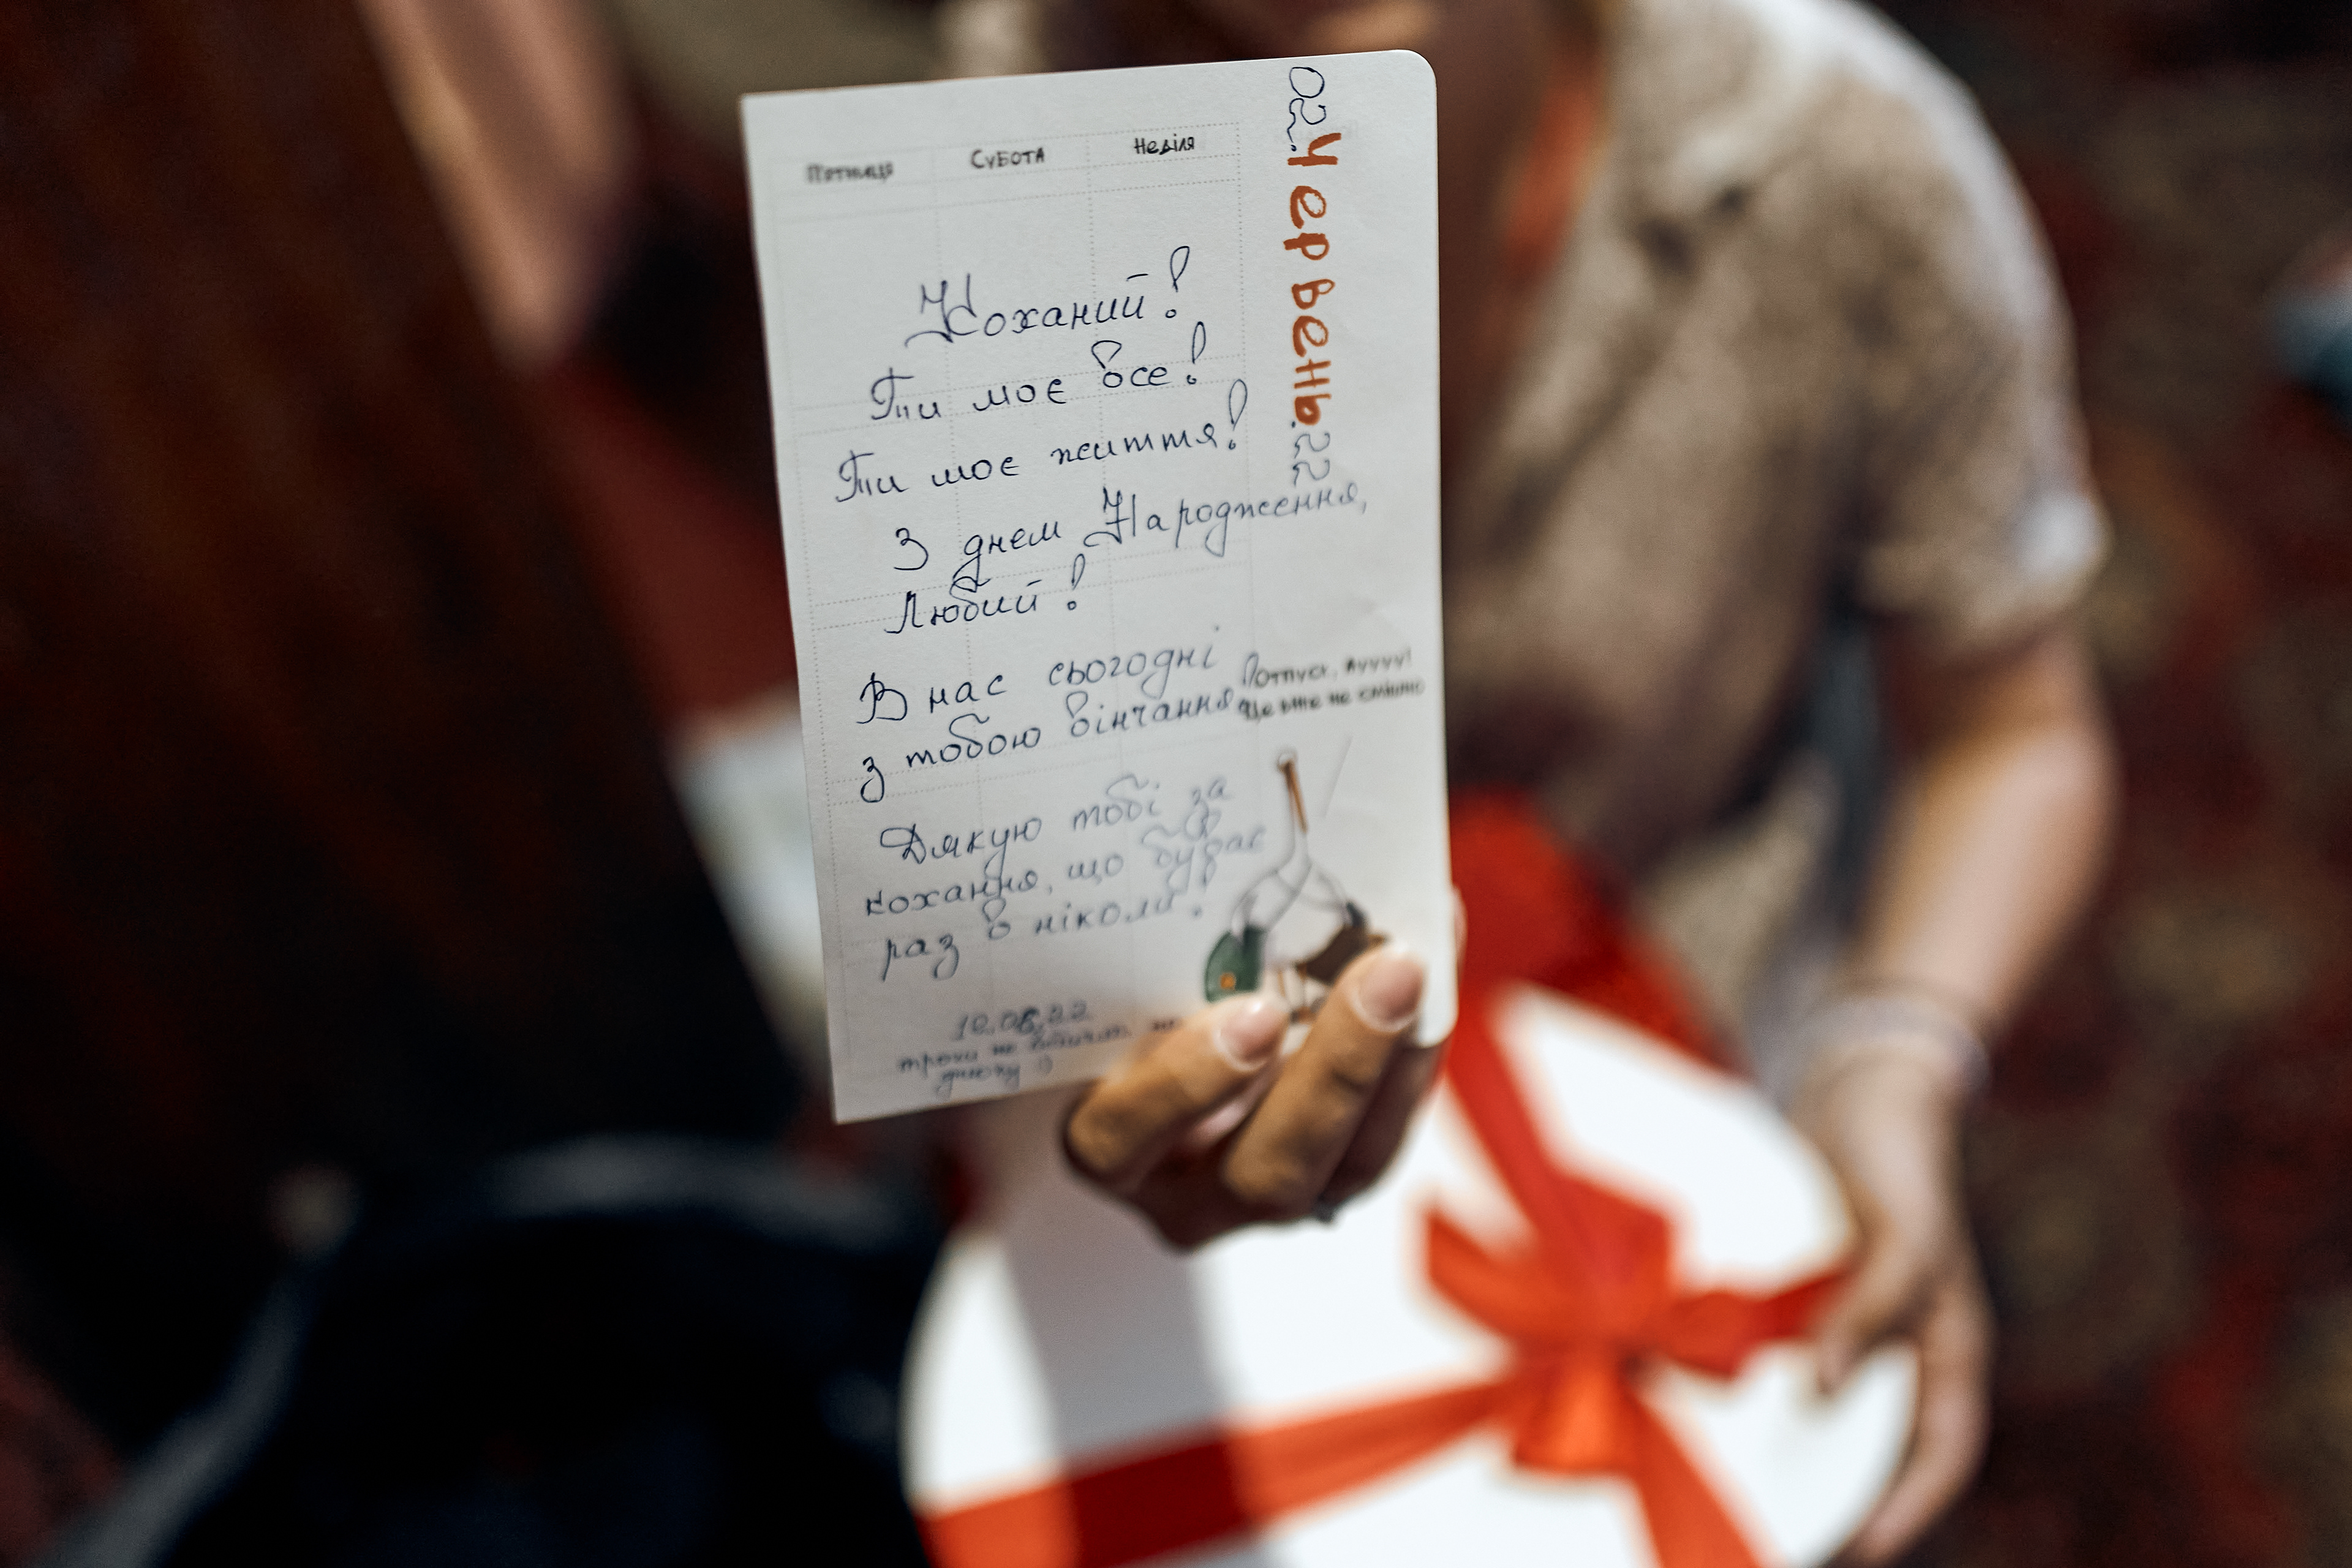 П'ятниця Субота Неділя
02.Червень.22
Коханий!
Ти моє все!
Ти моє життя!
З днем Народження,
Любий!
В нас сьогодні
з тобою вінчання
Дякую тобі за
кохання, що буває
раз в ніколи!
Вотпуск, Аууу!
Це вже не смішно
10.08.22
трохи не